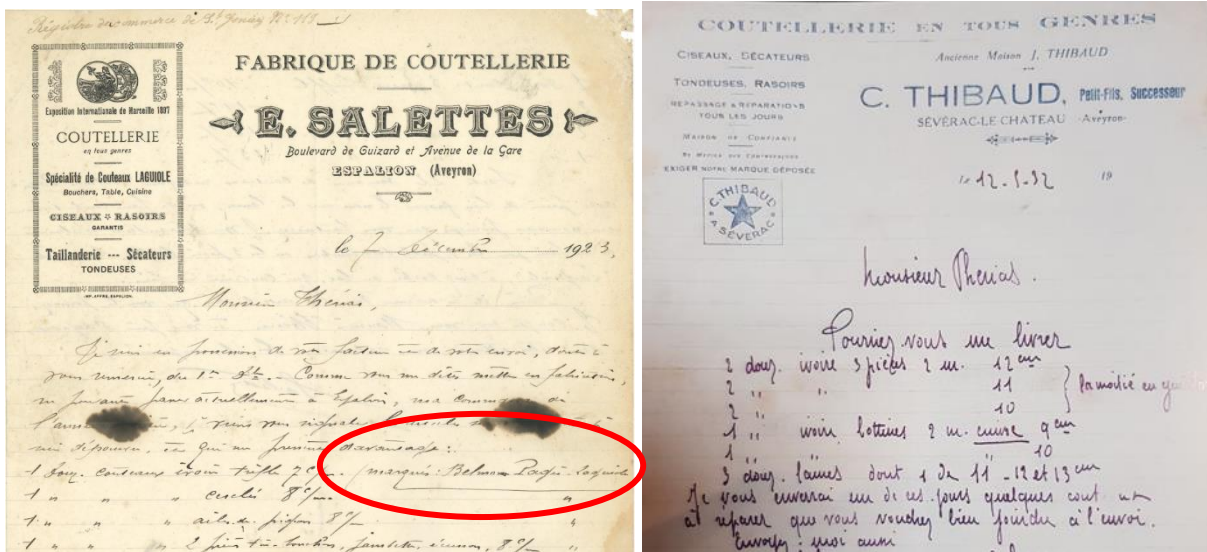 Registre du commerce de St Geniez No 113
Exposition Internationale de Marseille 1897
COUTELLERIE
en tous genres
Spécialité de Couteaux LAGUIOLE
Bouchers, Table, Cuisine
CISEAUX & RASOIRS
GARANTIS
Taillanderie --- Sécateurs
TONDEUSES
IMP. AFFRE, ESPALION.
FABRIQUE DE COUTELLERIE
E. SALETTES
Boulevard de Guizard et Avenue de la Gare
ESPALION (Aveyron)
le 7 décembre 1923,
Monsieur Thérias,
Je suis en possession de votre facture et de votre envoi,
Comme vous me dites mettre en fabrication,
davantage:
1 douz. couteaux ivoire trèfle 7 c/m. (marqués: Belmon Pagès-Laguiole
1 " " " ciselé 8 c/m. "
1 " " " ailes de pigeon 8 c/m "
1 " " " 2 pièces tire-bouchon, 8 c/m "
COUTELLERIE EN TOUS GENRES
CISEAUX, SÉCATEURS
TONDEUSES, RASOIRS
REPASSAGE & RÉPARATIONS
TOUS LES JOURS
MAISON DE CONFIANCE
SE MÉFIER DES CONTREFAÇONS
EXIGER NOTRE MARQUE DÉPOSÉE
C. THIBAUD
A SÉVERAC
Ancienne Maison J. THIBAUD
C. THIBAUD, Petit-Fils, Successeur
SÉVÉRAC-LE-CHATEAU -Aveyron-
Le 12.5.32 19
Monsieur Therias.
Pourriez vous me livrer
2 douz. ivoire 3 pièces 2 m. 12 cm
2 " " 11
2 " 10
la moitié en
1 " ivoire bottines 2 m. cuivre 9 cm
1 " 10
3 douz. lames dont 1 de 11 - 12 et 13 cm
Je vous enverrai un de ces jours quelques cout
à réparer que vous voudrez bien joindre à l'envoi.
Envoyez moi aussi